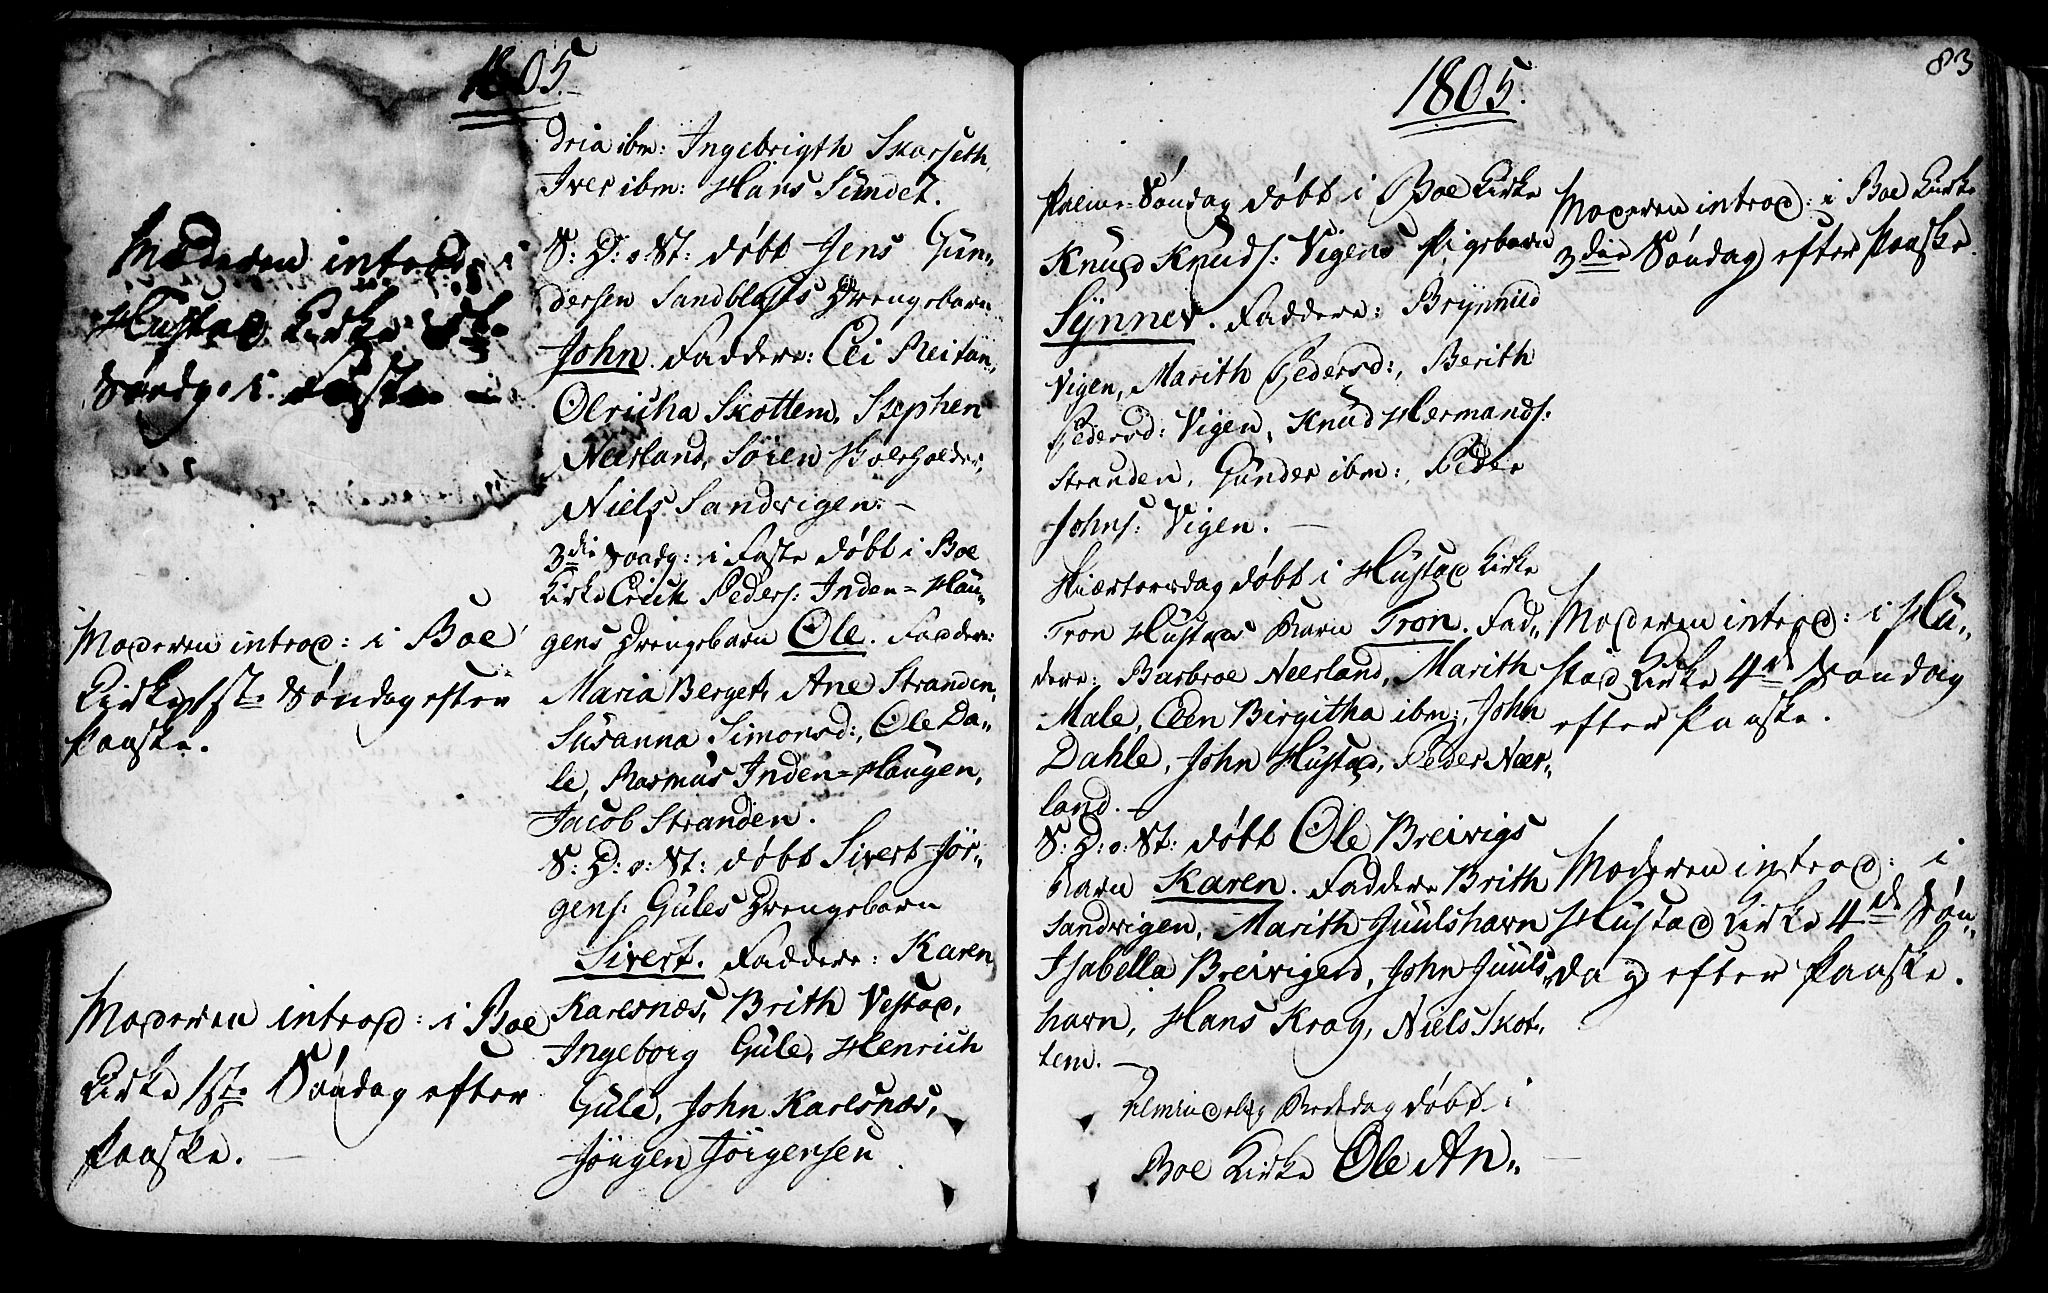 1805.
Moderen introd: i
Hustad Kirke
Søndg: i Faste
Moderen introd: i Boe
Kirke 1ste Søndag efter
Paaske.
Moderen introd: i Boe
Kirke 1ste Søndag efter
Paaske.
dria ibm: Ingebrigth Skarseth,
Iver ibm: Hans Sundet.
S: D: o: St: døbt Jens Gun„
dersen Sandblaases Drengebarn
John. Faddere: Eli Reitan,
Olricha Skottem, Stephen
Neerland, Sören
Niels Sandvigen. –
3die Søndg: i Faste døbt i Boe
Kirke Erich Peders: Inden=Hau„
gens Drengebarn Ole. Faddere:
Maria Berget, Ane Stranden,
Susanna Simonsd:, Ole Da„
le, Rasmus Inden=Haugen,
Jacob Stranden.
S: D: o: St: døbt Sivert Jör„
gens: Gules Drengebarn
Sivert. Faddere: Karen
Karlsnæs, Brith Vestad,
Ingeborg Gule, Henrich
Gule, John Karlsnæs,
Jörgen Jörgensen.
83
1805.
Palme=Søndag døbt i Boe Kirke
Knud Knuds: Vigens Pigebarn
Synnev. Faddere: Brynnild
Vigen, Marith Pedersd:, Berith
Pedersd: Vigen, Knud Hermands:
Stranden, Gunder ibm:, Peder
Johns: Vigen. –
Skiærtorsdag døbt i Hustad Kirke
Tron Hustads Barn Tron. Fad„
dere: Barbroe Neerland, Marith
Male, Elen Birgitha ibm:, John
Dahle, John Hustad, Peder Nær„
land. –
S: D: o: St: døbt Ole Breivigs
Barn Karen. Faddere Brith
Sandvigen, Marith Juulshavn
Isabella Breivigen, John Juuls„
havn, Hans Krog, Niels Skot„
tem. –
Almindelig Bededag døbt i
Boe Kirke Ole An„
Moderen introd: i Boe Kirke
3die Søndag efter Paaske.
Moderen introd: i Hu„
stad Kirke 4de Søndag
efter Paaske.
Moderen introd: i
Hustad Kirke 4de Søn„
dag efter Paaske.